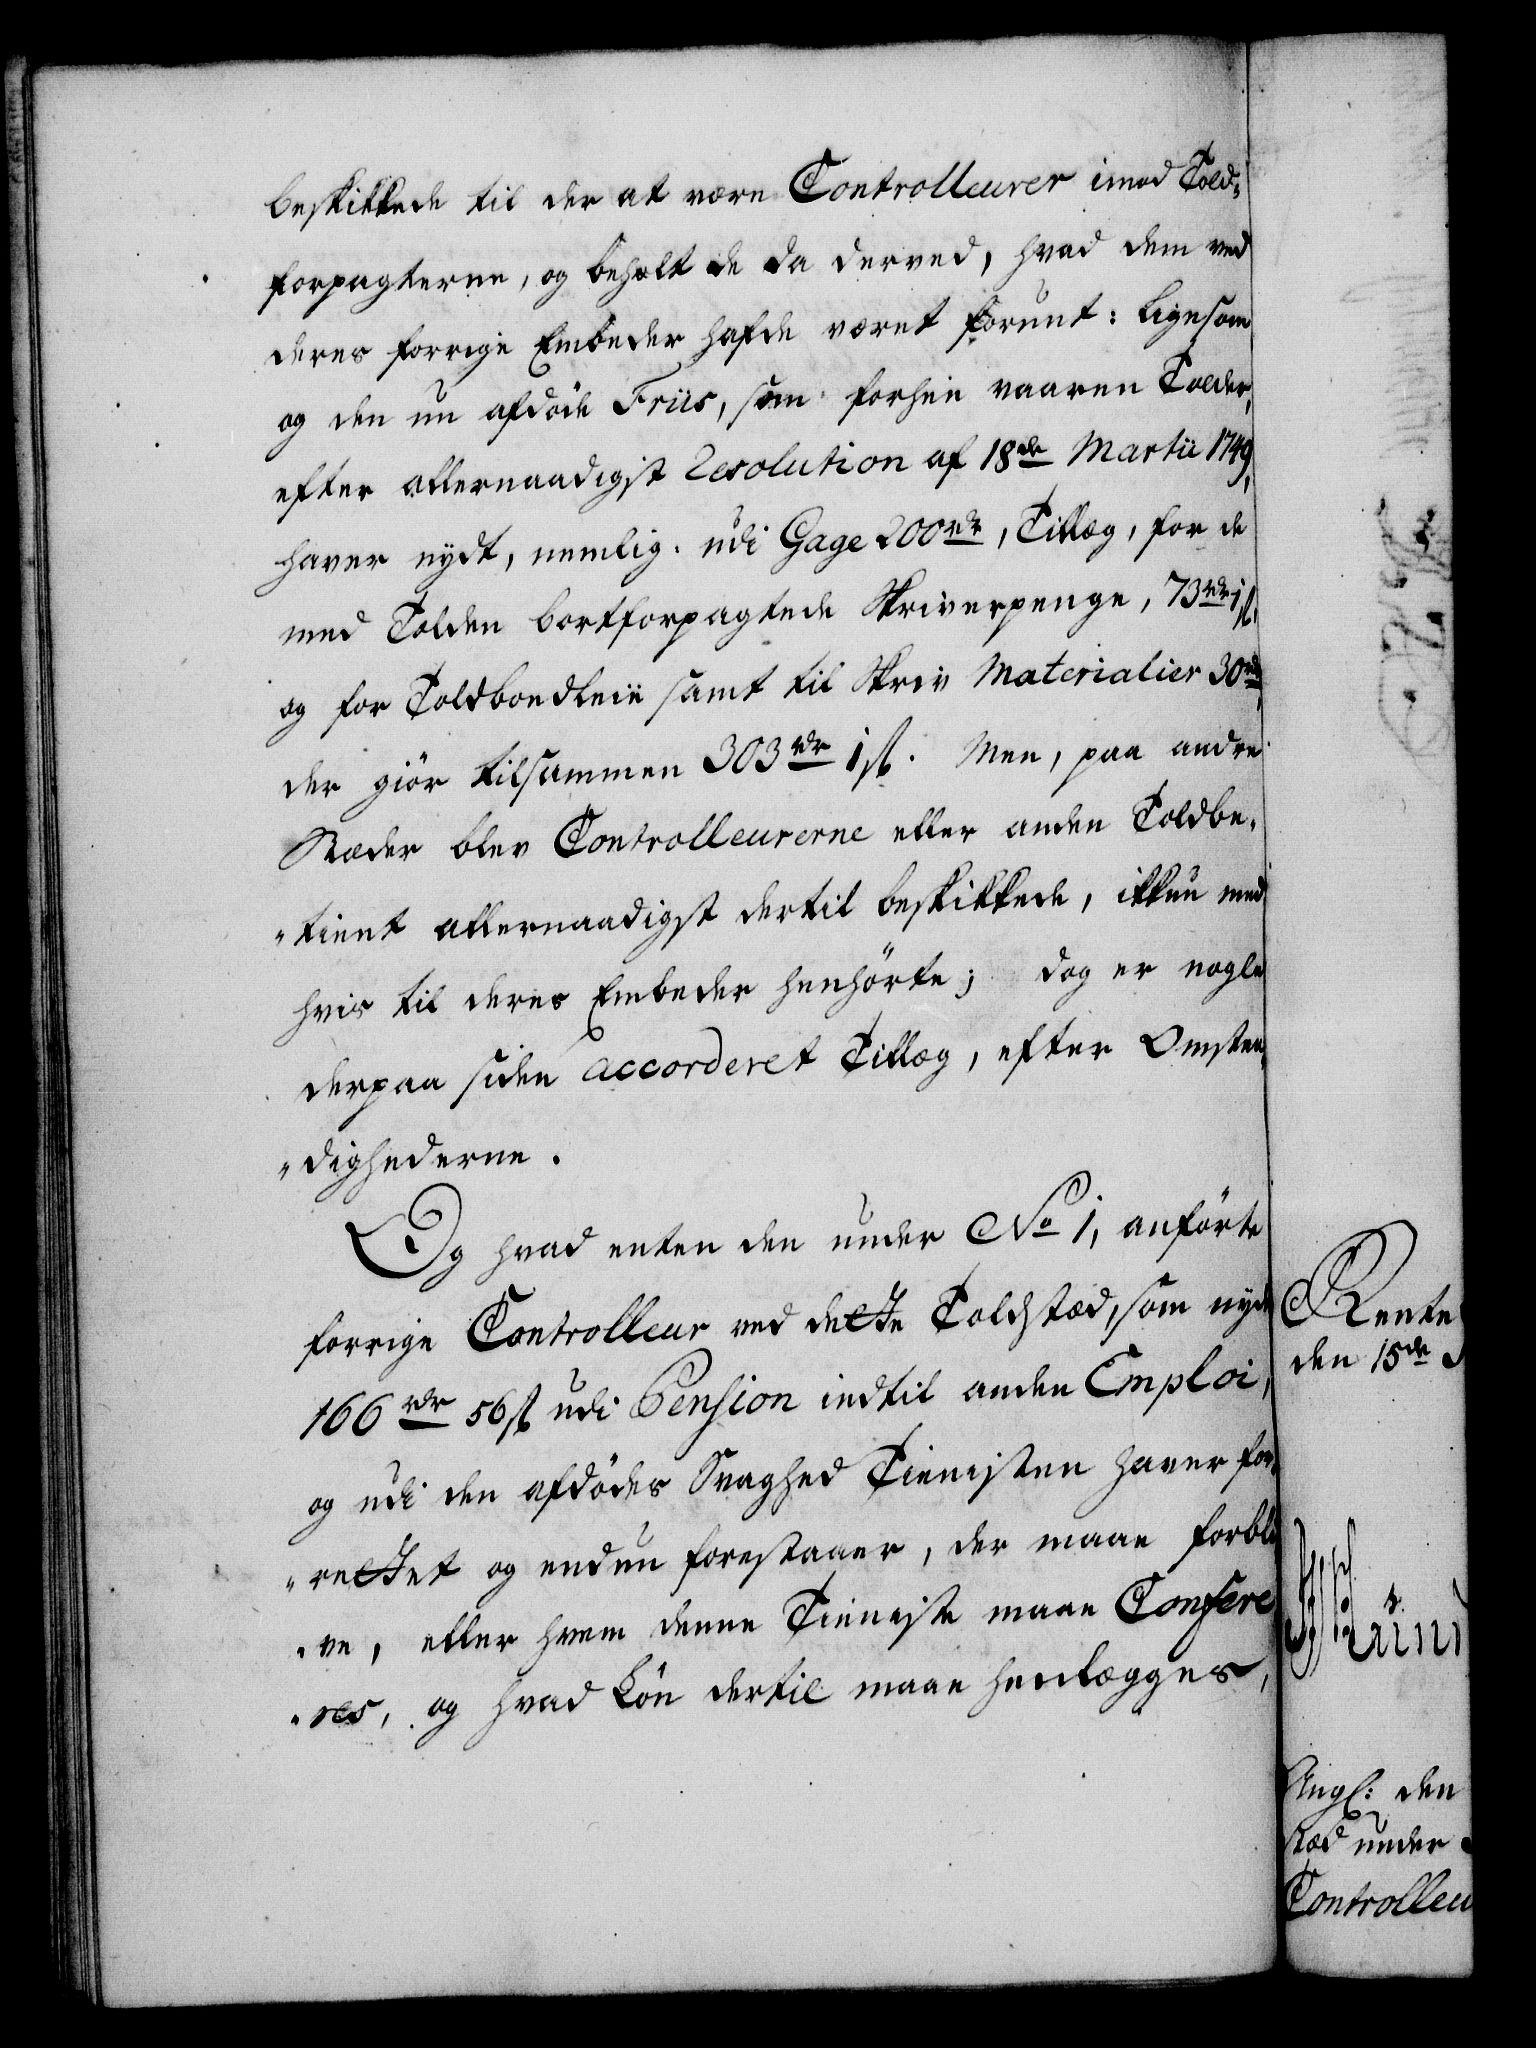 beskikkede til der at være Controlleurer imod Told-
forpagterne, og beholt de da derved, hvad dem ved
deres forrige Embeder hafde været forunt: ligesom
og den nu afdøde Friis, som forhen vaaren Tolder,
efter allernaadigst Resolution af 18de Martii 1749,
haver nydt, nemlig. udi Gage 200rdr, Tillæg, for de
med Tolden bortforpagtede Skriverpenge, 73rdr 1 ß.
og for Toldboedleie samt til Skriv Materialier 30rdr,
der giør tilsammen 303rdr 1 ß. Men, paa andre
Stæder blev Controlleurerne eller anden Toldbe-
"tient allernaadigst dertil beskikkede, ikkun med
hvis til deres Embeder henhörte; dog er nogle
derpaa siden accorderet Tillæg, efter Omstæn-
"dighederne.
Og hvad enten den under No 1, anförte
forrige Controlleur ved dette Toldstæd, som nyder
166rdr 56 ß udi Pension indtil anden Emploi,
og udi den afdödes Svaghed Tienisten haver for-
"rettet og endnu forestaaer, der maae forbli
"ve, eller hvem denne Tieniste maae Confere
"res, og hvad Lön dertil maae henlægges,
Rente
den 15de
Angl: den
stæd under
Controlleu